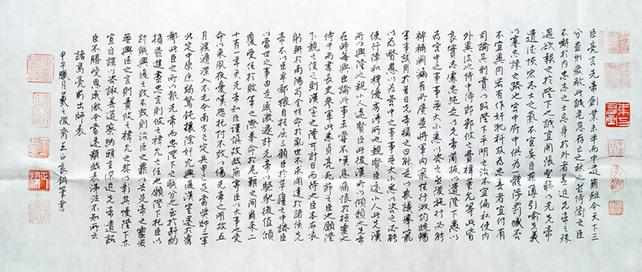 臣亮言先帝創業未半而中道崩殂今天下三
分益州疲弊此誠危急存亡之秋也然侍衛之臣
不懈於內忠志之士忘身於外者蓋追先帝之殊
遇欲報之於陛下也誠宜開張聖聽以光先帝
遺德恢弘志士之氣不宜妄自菲薄引喻失義
以塞忠諫之路也宮中府中俱為一體陟罰臧否
不宜異同若有作奸犯科及為忠善者宜付有
司論其刑賞以昭陛下平明之治不宜偏私使內
外異法也侍中侍郎郭攸之費禕董允等此皆
良實志慮忠純是以先帝簡拔以遺陛下愚以
為宮中之事事無大小悉以咨之然後施行必能
裨補闕漏有所廣益將軍向寵性行淑均曉暢
軍事試用於昔日先帝稱之曰能是以眾議舉寵
以為督愚以為營中之事事無大小悉以咨之必能
使行陣和穆優劣得所也親賢臣遠小人此先漢
所以興隆也親小人遠賢臣此後漢所以傾頹也先帝
在時每與臣論此事未嘗不嘆息痛恨於桓靈也
侍中尚書長史參軍此悉貞亮死節之臣也願陛
下親之信之則漢室之隆可計日而待也臣本布衣
躬耕於南陽苟全性命於亂世不求聞達於諸侯先
帝不以臣卑鄙猥自枉屈三顧臣於草廬之中諮臣
以當世之事由是感激遂許先帝以驅馳後值傾
覆受任於敗軍之際奉命於危難之間爾來二
十有一年矣先帝知臣謹慎故臨崩寄臣以大事也受
命以來夙夜憂嘆恐付託不效以傷先帝之明故五
月渡瀘深入不毛今南方已定兵甲已足當獎帥三軍
北定中原庶竭駑鈍攘除奸凶興復漢室還於舊
都此臣之所以報先帝而忠陛下之職分也至於斟酌
損益進盡忠言則攸之禕允之任也願陛下託臣以
討賊興復之效不效則治臣之罪以告先帝之靈若無
興德之言則責攸之禕允之咎以彰其慢陛下亦
宜自謀以咨諏善道察納雅言深追先帝遺詔
臣不勝受恩感激今當遠離臨表涕泣不知所云
諸葛亮前出師表
甲午